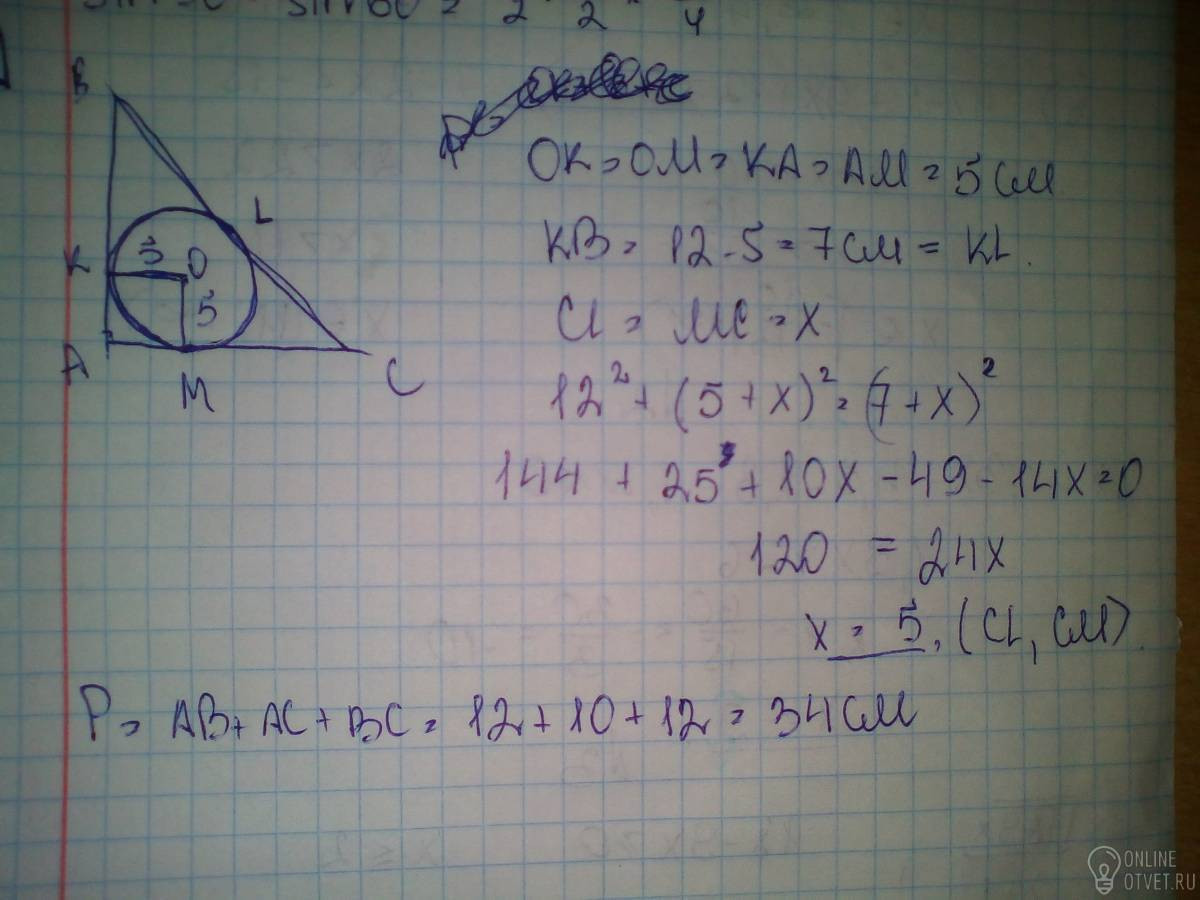 B
L
K 5 O
5
A
M
C
OK = OM = KA = AM = 5 см
KB = 12 - 5 = 7 см = KL.
CL = MC = x
12² + (5 + x)² = (7 + x)²
144 + 25 + 10x - 49 - 14x = 0
120 = 24x
x = 5. (CL, CM).
P = AB + AC + BC = 12 + 10 + 12 = 34 см
ONLINE
OTVET.RU